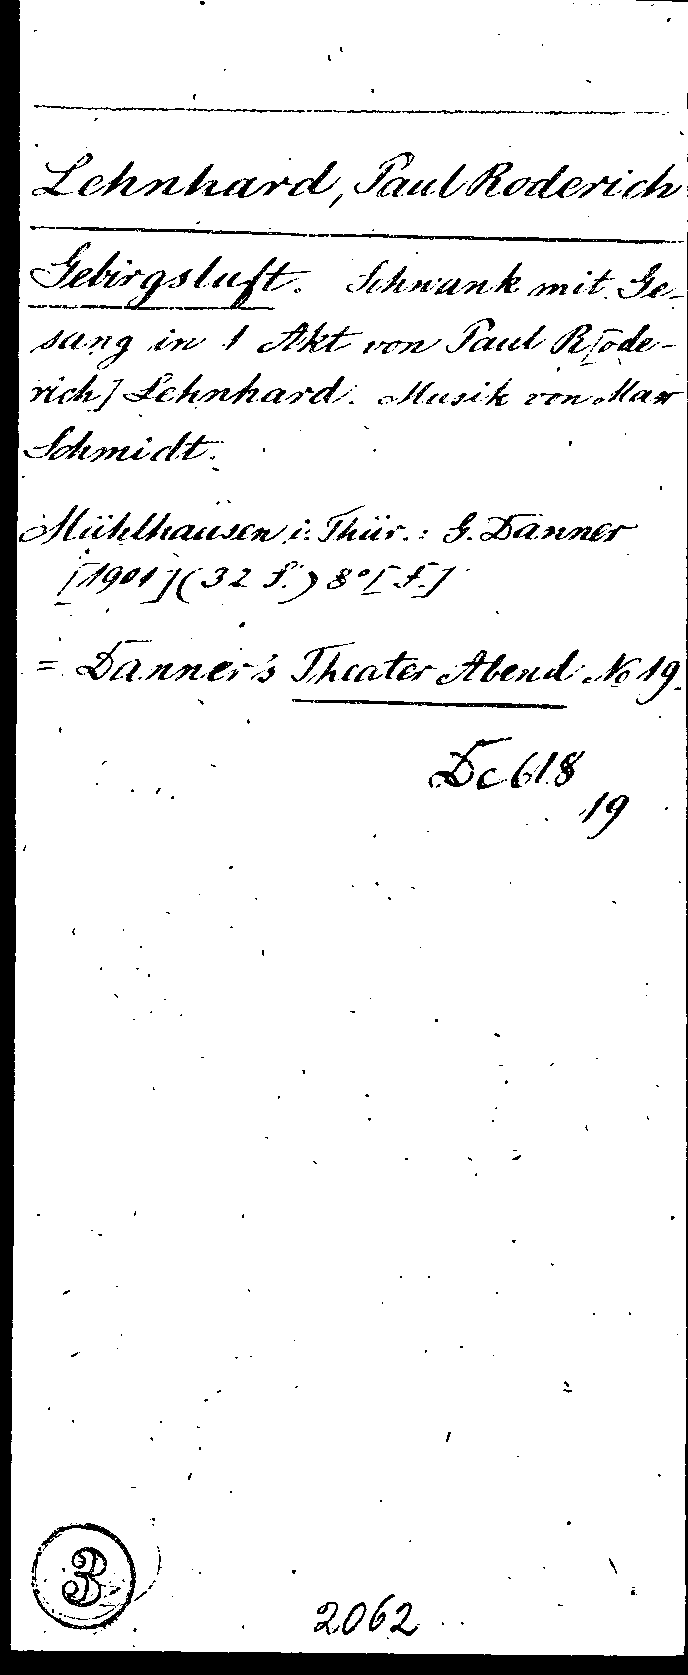 Lehnhard, Paul Roderich
Gebirgsluft. Schwank mit Ge-
sang in 1 Akt von Paul R[ode-
rich] Lehnhard. Musik von Max
Schmidt.
Mühlhausen i. Thür.: G. Danner
[1901] (32 S.) 8° [S.]
= Danner's Theater Abend No 19.
Dc 618
19
3
2062